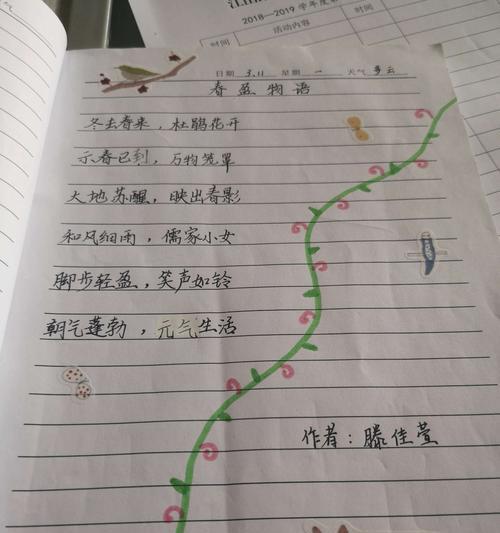 2018—2019 学年度
活动内容
时间
时间
日期 3.11 星期 一 天气 多云
春盈物语
冬去春来，杜鹃花开
示春已到，万物笼罩
大地苏醒，映出春影
和风细雨，儒家小女
脚步轻盈，笑声如铃
朝气蓬勃，元气生活
作者：滕佳萱